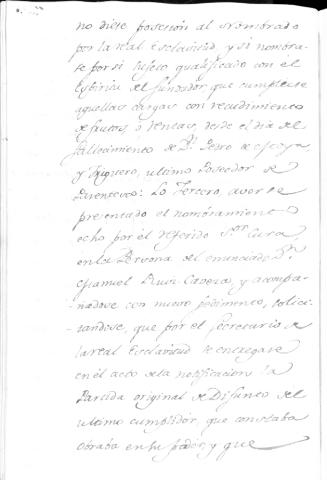 no diese posesion al Nombrado
por la real Esclavitud, y si nombra-
se por si sujeto qualificado con el
del fundador que cumpliese
aquellas cargas con recudimiento
de frutos, o rentas, desde el dia del
fallecimiento de Dn. Pedro de
y Triguero, ultimo Poseedor de
Lo Tercero, averse
presentado el nombramiento
echo por el referido Sor. Cura
en la Persona del enunciado Dn.
Manuel Ruiz y acompa-
ñadose con nuevo pedimento, solici-
tandose, que por el Secretario de
la real Esclavitud se entregase
en el acto de la notificacion la
Partida original de Difunto del
ultimo cumplidor, que constaba
obraba en su poder, y que